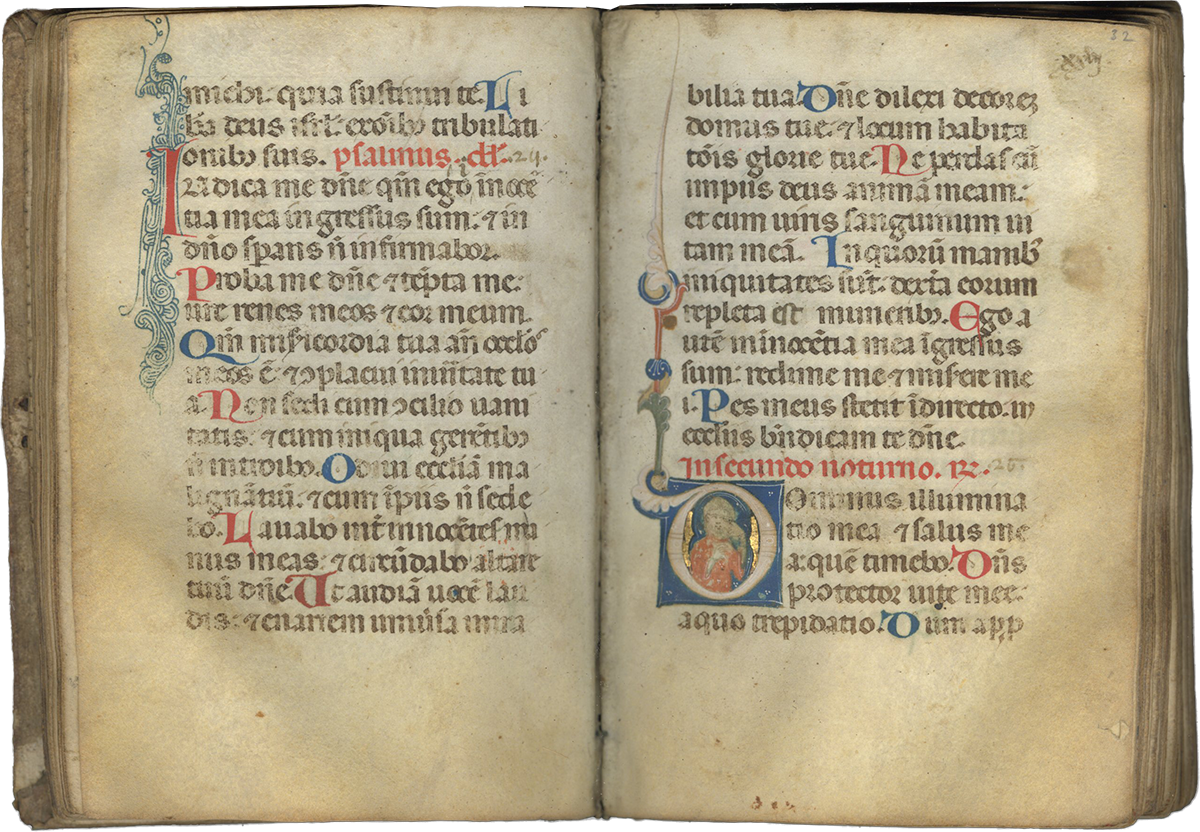 michi. quia sustinui te. Li
ba deus isrl. exoibꝫ tribulati
onibꝫ suis. psalmus. dd. 24.
Iudica me dñe qm̃ ego ĩnocẽ
tia mea ingressus sum: ⁊ in
dño sp̃ans ñ infirmabor.
Proba me dñe ⁊ tẽpta me:
ure renes meos ⁊ cor meum.
Qm̃ misicordia tua añ oclos
meos ẽ: ⁊ ↄplacui in uitate tu
a. Non sedi cum ↄcilio uani
tatis: ⁊ cum iniqua gerẽtibꝫ
ñ introibo. Odiui ecclĩam ma
lignãtiũ: ⁊ cum ĩpiis ñ sede
bo. Lauabo int̃ innocẽtes ma
nus meas: ⁊ circũdabo altare
tuũ dñe. Ut audiã uocẽ lau
dis: ⁊ enarrem uniũsa mira
32
bilia tua. Dñe dilexi decorez
domus tue: ⁊ locum habita
tõis glorie tue. Ne perdas cũ
impiis deus animã meam:
et cum uiris sanguinum ui
tam meã. In quorũ manibꝫ
iniquitates sũt: dext̃a eorum
repleta est muneribꝫ. Ego a
utẽ in inocẽtia mea ĩgressus
sum: redime me ⁊ misere me
i. Pes meus stetit ĩ directo: in
eccl̃iis bñdicam te dñe.
In secundo noturno. 26.
Ominus illumina
tio mea ⁊ salus me
a: quẽ timebo. Dñs
protector uite mee:
a quo trepidabo. Dum app